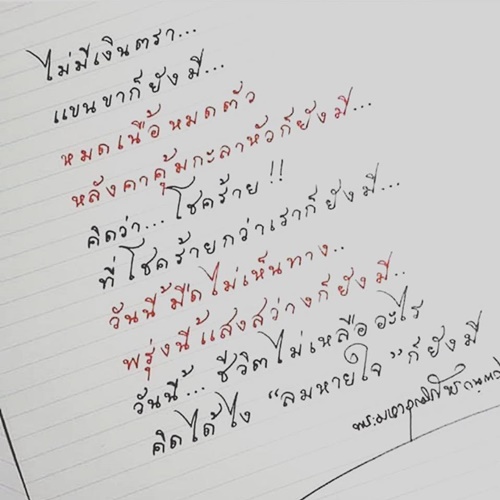 ไม่มีเงินตรา...
แขนขาก็ยังมี...
หมดเนื้อหมดตัว
หลังคาคุ้มกะลาหัวก็ยังมี...
คิดว่า... โชคร้าย!!
ที่โชคร้ายกว่าเราก็ยังมี...
วันนี้มืดไม่เห็นทาง..
พรุ่งนี้แสงสว่างก็ยังมี...
วันนี้... ชีวิตไม่เหลืออะไร
คิดได้ไง "ลมหายใจ" ก็ยังมี